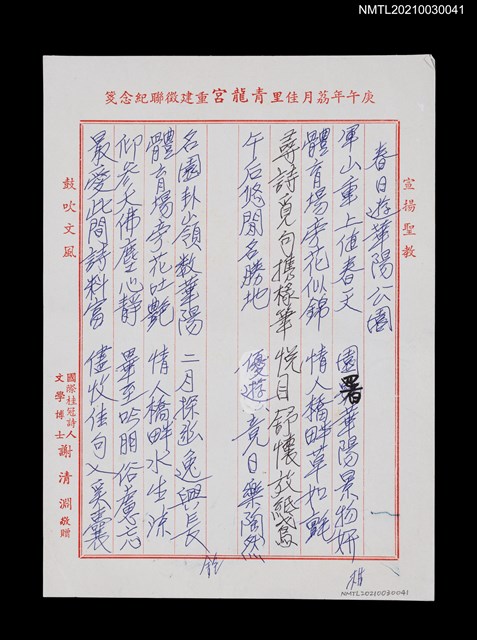 NMTL20210030041
庚午年荔月佳里青龍宮重建徵聯紀念箋
宣揚聖教
鼓吹文風
國際桂冠詩人
文學博士
謝清淵敬贈
春日遊華陽公園
軍山重上值春天 園署華陽景物妍
體育場旁花似錦 情人橋畔草如氈
尋詩覓句携椽筆 悅目舒懷放紙鳶
午后悠閒名勝地 優遊竟日樂陶然
名園卦嶺数華陽 二月探春逸興長
體育場旁花吐艷 情人橋畔水生涼
仰参大佛塵心静 畢至吟朋俗慮忘
最愛此間詩料富 儘收佳句入奚囊
NMTL20210030041